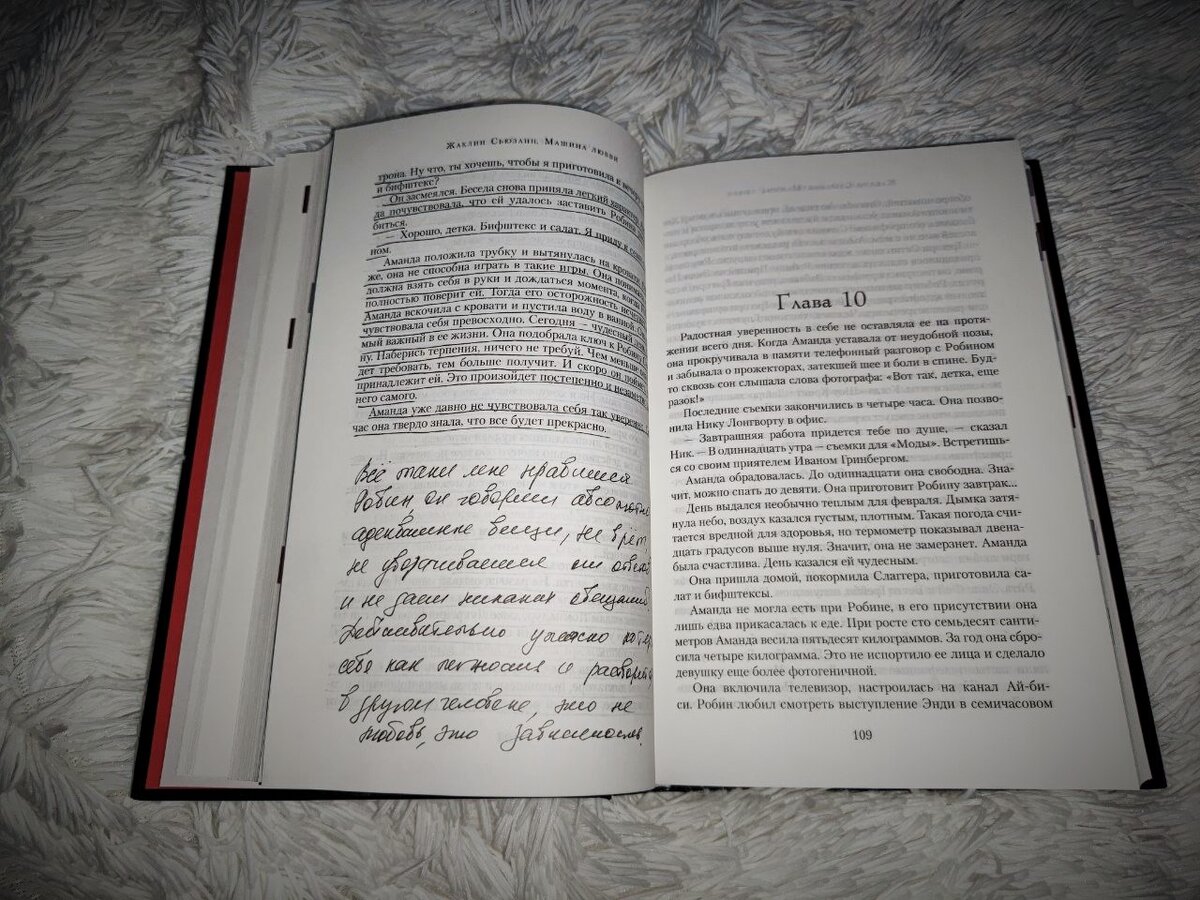 Жаклин Сьюзанн. Машина любви
трона. Ну что, ты хочешь, чтобы я приготовила к
и бифштекс?
Он засмеялся. Беседа снова приняла легкий
да почувствовала, что ей удалось заставить Робина
биться.
— Хорошо, детка. Бифштекс и салат. Я приду к
ном.
Аманда положила трубку и вытянулась на
же, она не способна играть в такие игры. Она
должна взять себя в руки и дождаться момента, когда
полностью поверит ей. Тогда его осторожность
Аманда вскочила с кровати и пустила воду в ванной.
чувствовала себя превосходно. Сегодня — чудесный
мый важный в ее жизни. Она подобрала ключ к Робину
ну. Наберись терпения, ничего не требуй. Чем меньше
дет требовать, тем больше получит. И скоро он
принадлежит ей. Это произойдет постепенно и
него самого.
Аманда уже давно не чувствовала себя так
час она твердо знала, что все будет прекрасно.
Всё таки мне нравится
Робин, он говорит абсолютно
адекватные вещи, не врёт,
не уворачивается от
и не даёт никаких обещаний.
Действительно ужасно
себя как личность и
в другом человеке, это не
любовь, это зависимость.
Глава 10
Радостная уверенность в себе не оставляла ее на протя-
жении всего дня. Когда Аманда уставала от неудобной позы,
она прокручивала в памяти телефонный разговор с Робином
и забывала о прожекторах, затекшей шее и боли в спине. Буд-
то сквозь сон слышала слова фотографа: «Вот так, детка, еще
разок!»
Последние съемки закончились в четыре часа. Она позво-
нила Нику Лонгворту в офис.
— Завтрашняя работа придется тебе по душе, — сказал
Ник. — В одиннадцать утра — съемки для «Моды». Встретишь-
ся со своим приятелем Иваном Гринбергом.
Аманда обрадовалась. До одиннадцати она свободна. Зна-
чит, можно спать до девяти. Она приготовит Робину завтрак...
День выдался необычно теплым для февраля. Дымка затя-
нула небо, воздух казался густым, плотным. Такая погода счи-
тается вредной для здоровья, но термометр показывал двена-
дцать градусов выше нуля. Значит, она не замерзнет. Аманда
была счастлива. День казался ей чудесным.
Она пришла домой, покормила Слаггера, приготовила са-
лат и бифштексы.
Аманда не могла есть при Робине, в его присутствии она
лишь едва прикасалась к еде. При росте сто семьдесят санти-
метров Аманда весила пятьдесят килограммов. За год она сбро-
сила четыре килограмма. Это не испортило ее лица и сделало
девушку еще более фотогеничной.
Она включила телевизор, настроилась на канал Ай-би-
си. Робин любил смотреть выступление Энди в семичасовом
109